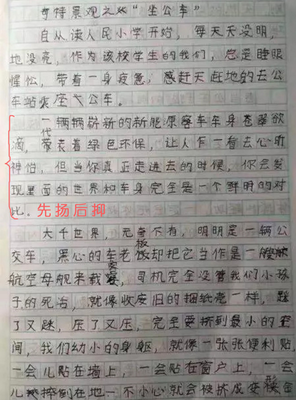 奇特景观之“坐公车”
自从读人民小学开始，每天天没明，
地没亮，作为该校学生的我们，总是睡眼
惺忪，带着一身疲惫，感赶天赶地的去公
车站坐公车。
一辆辆崭新的新能源客车车身葱翠欲
滴，代表着绿色环保，让人乍一看去心旷
神怡，但当你真正走进去的时候，你会发
现里面的世界和车身完全是一个鲜明的对
比。先扬后抑
大千世界，无奇不有，明明是一辆公
交车，黑心的车老板却把它当作是一艘
航空母舰来载客，司机完全没管我们小孩
子的死活，就像收废旧的捆纸壳一样，踩
了又踩，压了又压，完全要挤到最小的空
间，我们幼小的身躯，就像一张张便利贴
一会儿贴在墙上，一会贴在窗户上，一会
儿摔倒在地一不小心就会被挤成变形金